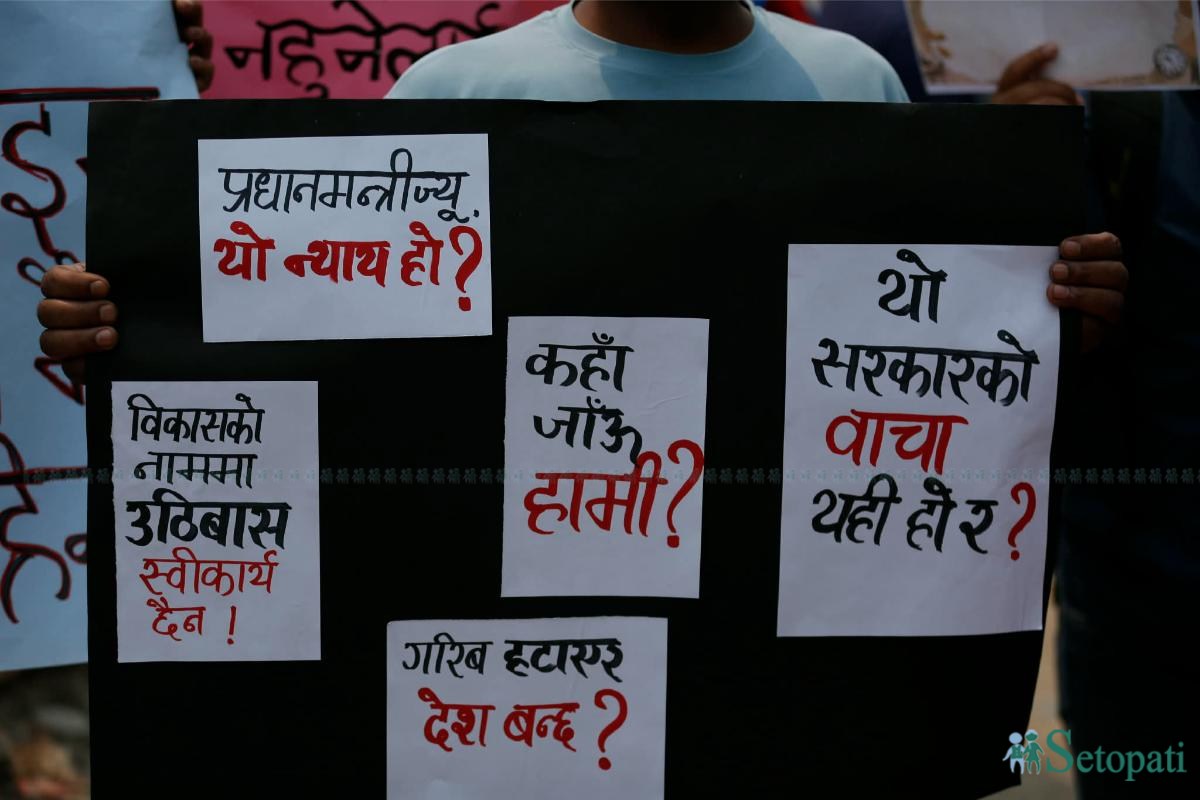 प्रधानमन्त्रीज्यू,
यो न्याय हो?
यो
सरकारको
वाचा
यही हो र?
कहाँ
जाँऊ
हामी?
विकासको
नाममा
उठिबास
स्वीकार्य
छैन!
गरिब हटाएर
देश बन्छ?
Setopati